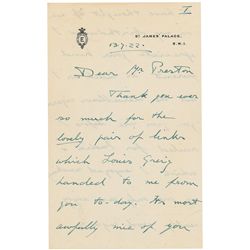 I
E
ST JAMES' PALACE,
S.W.1.
13.7.22.
Dear Mr Preston
Thank you ever
so much for the
lovely pair of links
which Louis Greig
handed to me from
you to-day. It's most
awfully nice of you